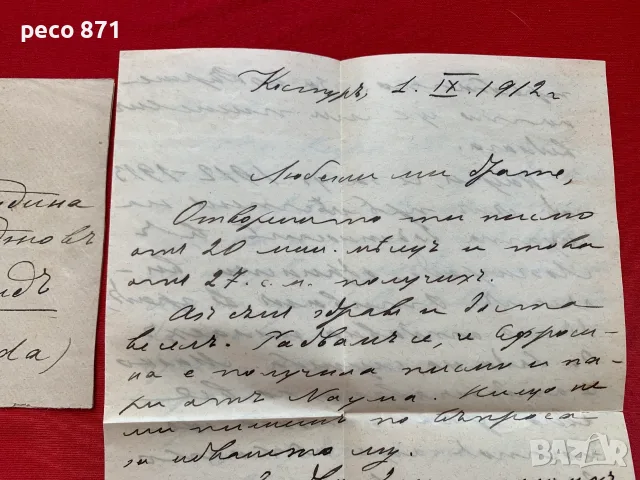 peco 871
Костуръ, 1. IX. 1912 г
Любезни ми брате,
Отворилото ти писмо
отъ 20 мин. мѣсецъ и това
отъ 27. с.м. получихъ.
Азъ съм здравъ и доста
веселъ. Радвамъ се, че Ефроси-
на е получила писмо и па-
ри отъ Наума. Нищо не
ми пишешъ по въпроса
за идването му.
ида)
BAZAR